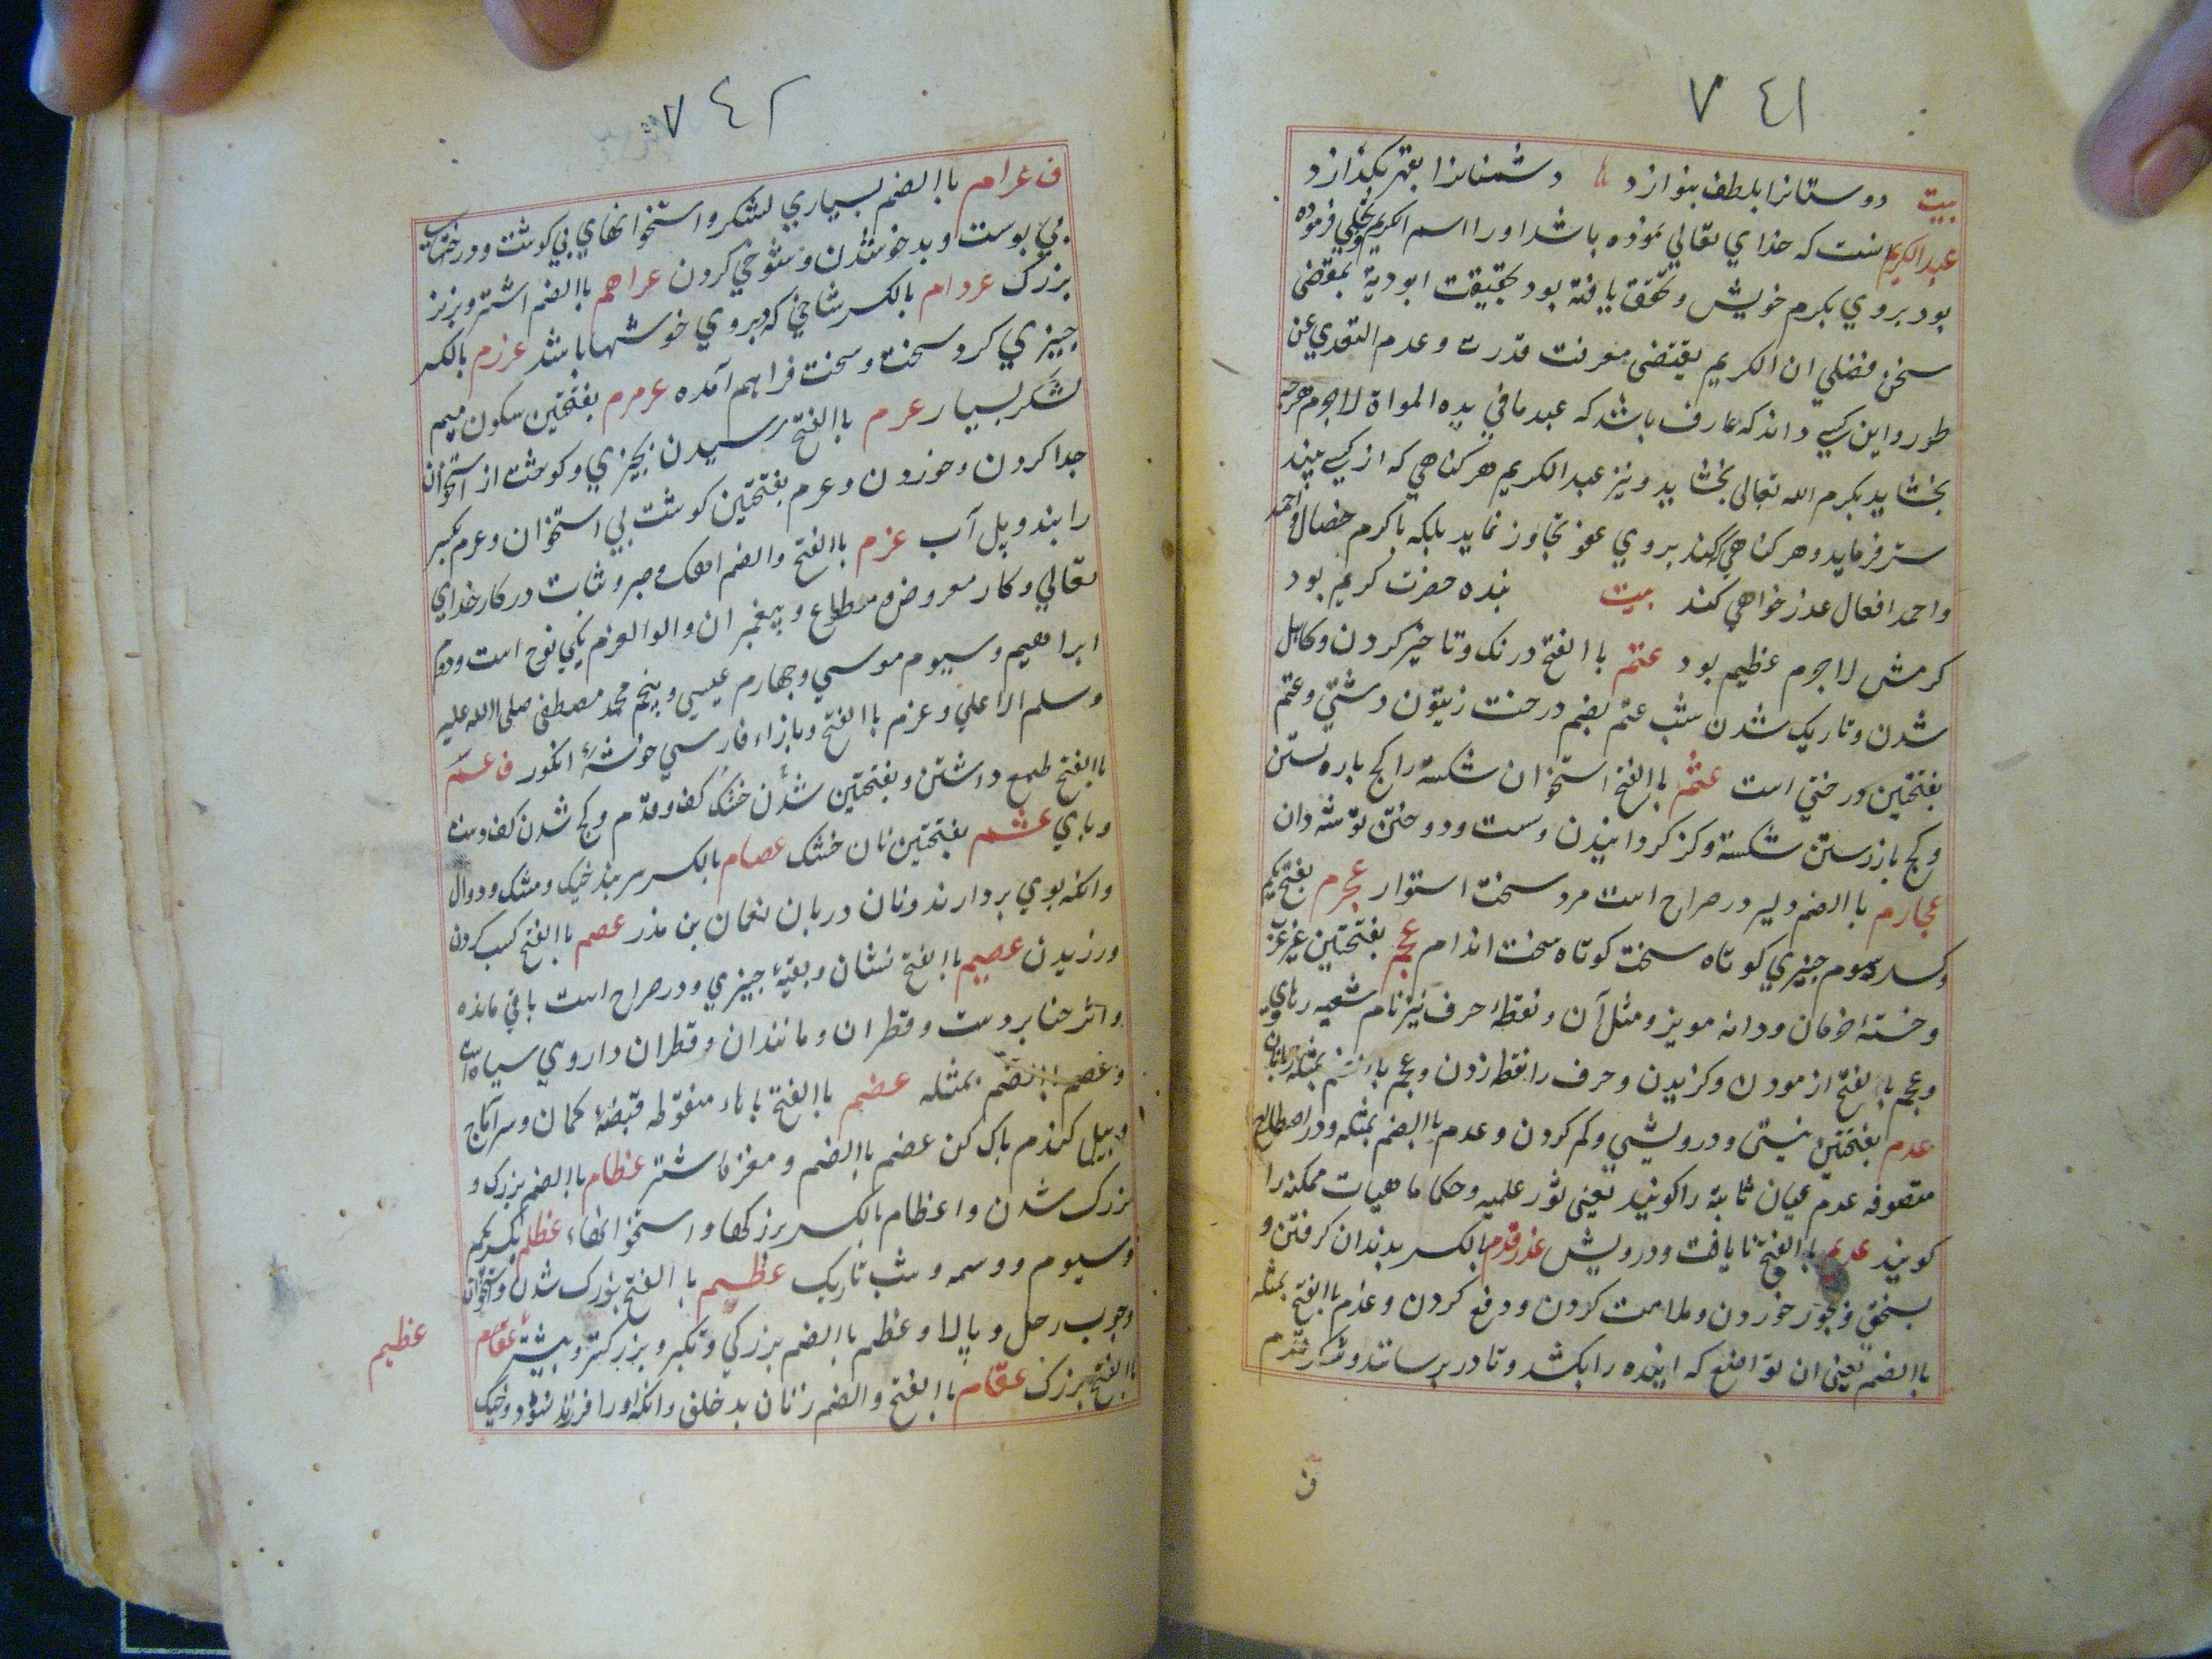 ٧٤١
بیت دوستانرا بلطف بنوازد دشمنانرا بقهر بکدازد
عبدالکریم انست که خدای تعالی نموده باشد اورا اسم الکریم و تجلی فرموده
بود بروی بکرم خویش و تحقق یافته بود بحقیقت ابودیة بمقتضی
سخن فضلی ان الکریم یقتضی معرفت قدرت و عدم التعدی عن
طور و این کسی داند که عارف باشد که عبد ما فی یده المواة لاجرم هرچه
بخشاید بکرم الله تعالی بخشاید و نیز عبد الکریم هر کناهی که از کسی بیند
ستر فرماید و هر کناهی کند بروی عفو تجاوز نماید بلکه باکرم خصال و احمد
واحمد افعال عذر خواهی کند بیت بنده حضرت کریم بود
کرمش لاجرم عظیم بود عتم باالفتح درنک و تاخیر کردن و کاهل
شدن و تاریک شدن شب عتم بضم درخت زیتون دشتی و عتم
بفتحتین درختی است عثم باالفتح استخوان شکسته را کج باره بستن
و کج بازرستن شکسته و کز کردانیدن دست و دوختن توشه دان
عجارم باالضم دلیر در صراح است مرد سخت استوار عجرم بفتح یکم
وکسر سوم چیزی کوتاه سخت کوتاه سخت اندام عجم بفتحتین غیر عرب
و خستهٔ خرمان و دانه مویز و مثل آن و نقطهٔ حرف نیز نام شعبه رهاوی
و عجم باالفتح ازمودن و کزیدن و حرف را نقطه زدن و عجم باالضم بمثله
عدم بفتحتین نیستی و درویشی و کم کردن و عدم باالضم بمثله و در اصطلاح
متصوفه عدم عیان ثابته را کویند یعنی نور علمیه و حکما ماهیات ممکنه را
کویند عدیم باالفتح نا یافت و درویش عذرقدم بالکسر بدندان کرفتن و
بسختی و بجور خوردن و ملامت کردن و دفع کردن و عذم باالفتح بمثله
باالضم یعنی ان تواضع که اینده را بکشد و تا در برسانند و شکر قدم
ف
٧٤٢
ف عرام باالضم بسیاری لشکر و استخوانهای بی کوشت و درختهای
بی پوست و بدخو شدن و شوخی کردن عراهم باالضم اشتر و بزبز
بزرک عردام بالکسر شاخی که بروی خوشها باشد عرزم بالکسر
چیزی کرد سخت و سخت فراهم آمده عرمرم بفتحتین سکون میم
لشکر بسیار عرم باالفتح رسیدن بچیزی و کوشت از استخوان
جدا کردن و خوردن و عرم بفتحتین کوشت بی استخوان و عرم بکسر
را بند و پل آب عزم باالفتح والضم اهنک و صبر و ثبات در کار خدای
تعالی و کار معروض و مطاع و پیغمبران و الوالعزم یکی نوح است و دوم
ابراهیم و سیوم موسی و چهارم عیسی و پنجم محمد مصطفی صلی الله علیه
وسلم الاعلی و عزم باالفتح و بازاء فارسی خوشهٔ انکور ف عسم
باالفتح طمع داشتن و بفتحتین شدن خشک کف و قدم و کج شدن کف دست
و پای عشم بفتحتین نان خشک عصام بالکسر سر بند خیک و مشک و دوال
وانکه بوی بردارند و نان دربان نعمان بن منذر عصم باالفتح کسب کردن
ورزیدن عصیم باالفتح نشان و بقیهٔ چیزی و در صراح است باقی مانده
و اثر حنا بر دست و قطران و مانند ان و قطران داروی سیاه است
و عصم باالضم بمثله عضم باالفتح باهاء منقوطه قبضهٔ کمان و سر آماج
و بیل کندم پاک کن عضم باالضم و مغزهٔ شتر عظام باالضم بزرک و
بزرک شدن و اعظام بالکسر بزرکها و استخوانها، عظلم بکسر یکم
و سیوم و وسمه و شب تاریک عظیم باالفتح بزرک شدن و استخوان
و چوب رحل و پالا و عظم باالضم بزرکی و تکبر و بزرکتر و بیشتر عقام
باالفتح بزرک عقام باالفتح والضم زنان بدخلق وانکه او را فرزند نشود و خیک
عظیم